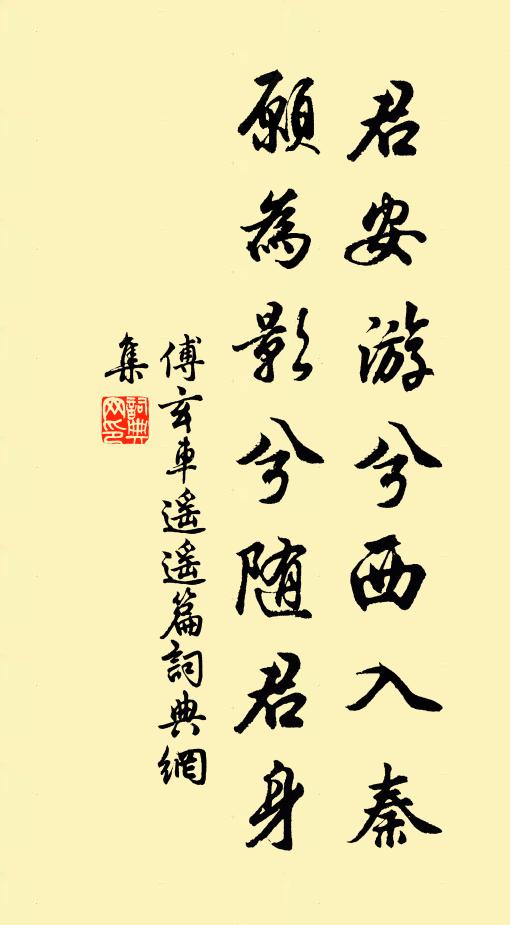 君安游兮西入秦
願為影兮隨君身
傅玄車遥遥篇詞典網
集
詞典网印